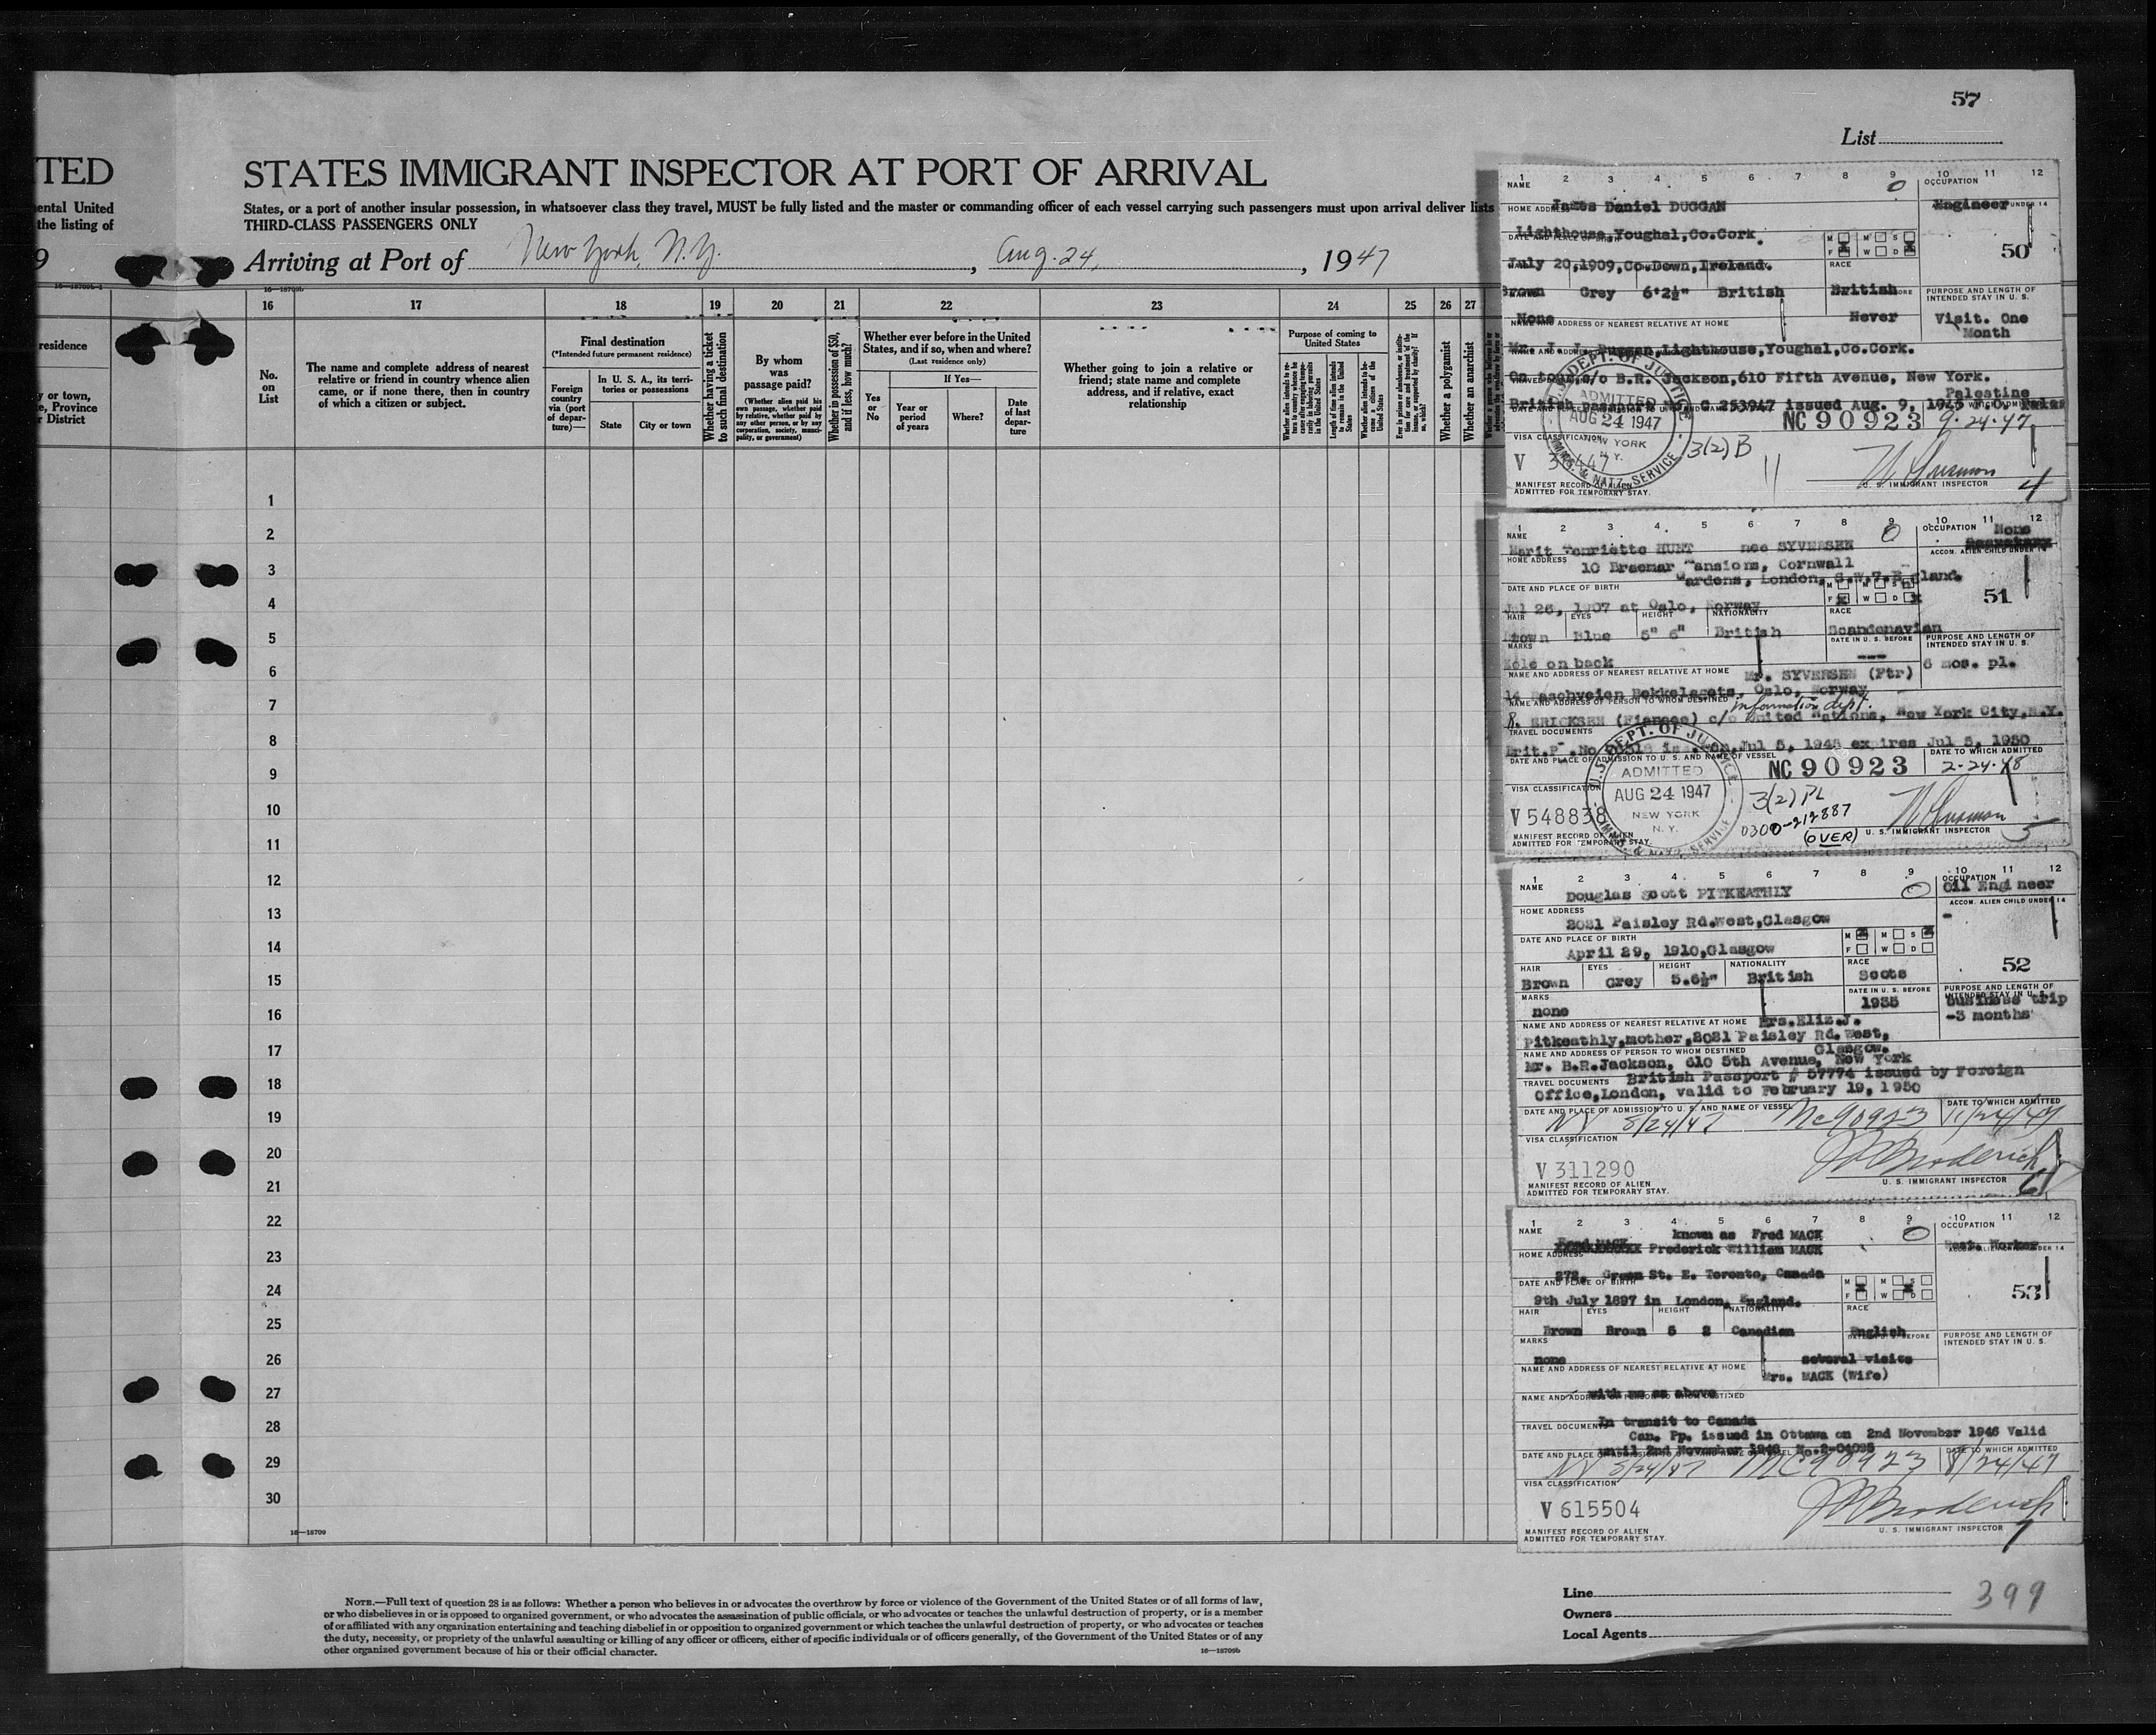 57
List
TED
STATES IMMIGRANT INSPECTOR AT PORT OF ARRIVAL
ental United
the listing of
States, or a port of another insular possession, in whatsoever class they travel, MUST be fully listed and the master or commanding officer of each vessel carrying such passengers must upon arrival deliver lists
THIRD-CLASS PASSENGERS ONLY
9
Arriving at Port of New York, N.Y., Aug. 24, 1947
16—18709b-1
16—18709b
16 17 18 19 20 21 22 23 24 25 26 27
residence
y or town,
e, Province
r District
No.
on
List
The name and complete address of nearest
relative or friend in country whence alien
came, or if none there, then in country
of which a citizen or subject.
Final destination
(*Intended future permanent residence)
Foreign
country
via (port
of depar-
ture)—
In U. S. A., its terri-
tories or possessions
State
City or town
Whether having a ticket
to such final destination
By whom
was
passage paid?
(Whether alien paid his
own passage, whether paid
by relative, whether paid by
any other person, or by any
corporation, society, munici-
pality, or government)
Whether in possession of $50,
and if less, how much?
Whether ever before in the United
States, and if so, when and where?
(Last residence only)
Yes
or
No
If Yes—
Year or
period
of years
Where?
Date
of last
depar-
ture
Whether going to join a relative or
friend; state name and complete
address, and if relative, exact
relationship
Purpose of coming to
United States
Length of time alien intends
to remain in the United
States
Whether a polygamist
Whether an anarchist
1
2
3
4
5
6
7
8
9
10
11
12
13
14
15
16
17
18
19
20
21
22
23
24
25
26
27
28
29
30
16—18709
NOTE.—Full text of question 28 is as follows: Whether a person who believes in or advocates the overthrow by force or violence of the Government of the United States or of all forms of law,
or who disbelieves in or is opposed to organized government, or who advocates the assassination of public officials, or who advocates or teaches the unlawful destruction of property, or is a member
of or affiliated with any organization entertaining and teaching disbelief in or opposition to organized government or which teaches the unlawful destruction of property, or who advocates or teaches
the duty, necessity, or propriety of the unlawful assaulting or killing of any officer or officers, either of specific individuals or of officers generally, of the Government of the United States or of any
other organized government because of his or their official character.
16—18709b
1 2 3 4 5 6 7 8 9 10 11 12
NAME
OCCUPATION
James Daniel DUGGAN
Engineer
HOME ADDRESS
Lighthouse, Youghal, Co. Cork.
50
July 20, 1909, Co. Down, Ireland.
RACE
Brown Grey 6'2½" British British
PURPOSE AND LENGTH OF
INTENDED STAY IN U. S.
None Never
Visit. One
Month
NAME AND ADDRESS OF NEAREST RELATIVE AT HOME
Mr. J. J. Duggan, Lighthouse, Youghal, Co. Cork.
On tour, c/o B.R. Jackson, 610 Fifth Avenue, New York.
Palestine
British passport No. C 253947 issued Aug. 9, 1945
U.S. DEPT. OF JUSTICE
ADMITTED
AUG 24 1947
NEW YORK
N. Y.
IMMIG. & NATZ. SERVICE
NC 90923
9-24-47
VISA CLASSIFICATION
3(2) B
MANIFEST RECORD OF ALIEN
ADMITTED FOR TEMPORARY STAY.
U. S. IMMIGRANT INSPECTOR
4
1 2 3 4 5 6 7 8 9 10 11 12
NAME
OCCUPATION None
Marit Henriette HUNT nee SYVERSEN
ACCOM. ALIEN CHILD UNDER 14
HOME ADDRESS
10 Braemar Mansions, Cornwall
Gardens, London, S.W.7. England.
DATE AND PLACE OF BIRTH
51
Jul 26, 1907 at Oslo, Norway
HAIR EYES HEIGHT NATIONALITY RACE
Brown Blue 5" 6" British Scandenavian
MARKS
DATE IN U. S. BEFORE
PURPOSE AND LENGTH OF
INTENDED STAY IN U. S.
Mole on back
6 mos. pl.
NAME AND ADDRESS OF NEAREST RELATIVE AT HOME
Mr. SYVERSEN (Ftr)
Oslo, Norway
NAME AND ADDRESS OF PERSON TO WHOM DESTINED
information dept.
R. ERICKSEN (Fiancee) c/o United Nations, New York City, N.Y.
TRAVEL DOCUMENTS
Jul 5, 1945 expires Jul 5, 1950
DATE AND PLACE OF ADMISSION TO U. S. AND NAME OF VESSEL
DATE TO WHICH ADMITTED
U.S. DEPT. OF JUSTICE
ADMITTED
AUG 24 1947
NEW YORK
N. Y.
NC 90923
2-24-48
VISA CLASSIFICATION
V 548838
3(2) PL
0300-212887
(OVER)
MANIFEST RECORD OF ALIEN
ADMITTED FOR TEMPORARY STAY.
U. S. IMMIGRANT INSPECTOR
5
1 2 3 4 5 6 7 8 9 10 11 12
NAME
OCCUPATION
Douglas Scott PITKEATHLY
Oil Engineer
HOME ADDRESS
ACCOM. ALIEN CHILD UNDER 14
2021 Paisley Rd. West, Glasgow
DATE AND PLACE OF BIRTH
April 29, 1910, Glasgow
52
HAIR EYES HEIGHT NATIONALITY RACE
Brown Grey 5.6½" British Scots
MARKS
DATE IN U. S. BEFORE
PURPOSE AND LENGTH OF
INTENDED STAY IN U. S.
none
1935
business trip
-3 months
NAME AND ADDRESS OF NEAREST RELATIVE AT HOME Mrs. Eliz. J.
Pitkeathly, mother, 2021 Paisley Rd. West,
Glasgow.
NAME AND ADDRESS OF PERSON TO WHOM DESTINED
Mr. B.R. Jackson, 610 5th Avenue, New York
TRAVEL DOCUMENTS British Passport # 57774 issued by Foreign
Office, London, valid to February 19, 1950
DATE AND PLACE OF ADMISSION TO U. S. AND NAME OF VESSEL
DATE TO WHICH ADMITTED
NY 8/24/47 Nc90923 11/24/47
VISA CLASSIFICATION
V 311290
MANIFEST RECORD OF ALIEN
ADMITTED FOR TEMPORARY STAY.
U. S. IMMIGRANT INSPECTOR
6
1 2 3 4 5 6 7 8 9 10 11 12
NAME
OCCUPATION
known as Fred MACK
Frederick William MACK
HOME ADDRESS
Rest. Worker
272, Green St. E. Toronto, Canada
DATE AND PLACE OF BIRTH
9th July 1897 in London, England.
53
HAIR EYES HEIGHT NATIONALITY RACE
Brown Brown 5 2 Canadian English
MARKS
PURPOSE AND LENGTH OF
INTENDED STAY IN U. S.
none
several visits
NAME AND ADDRESS OF NEAREST RELATIVE AT HOME
Mrs. MACK (Wife)
with me as above
In transit to Canada
TRAVEL DOCUMENTS
Can. Pp. issued in Ottawa on 2nd November 1946 Valid
until 2nd November 1948
DATE TO WHICH ADMITTED
NY 8/24/47 NC90923 8/24/47
VISA CLASSIFICATION
V 615504
MANIFEST RECORD OF ALIEN
ADMITTED FOR TEMPORARY STAY.
U. S. IMMIGRANT INSPECTOR
7
Line
Owners
Local Agents
399